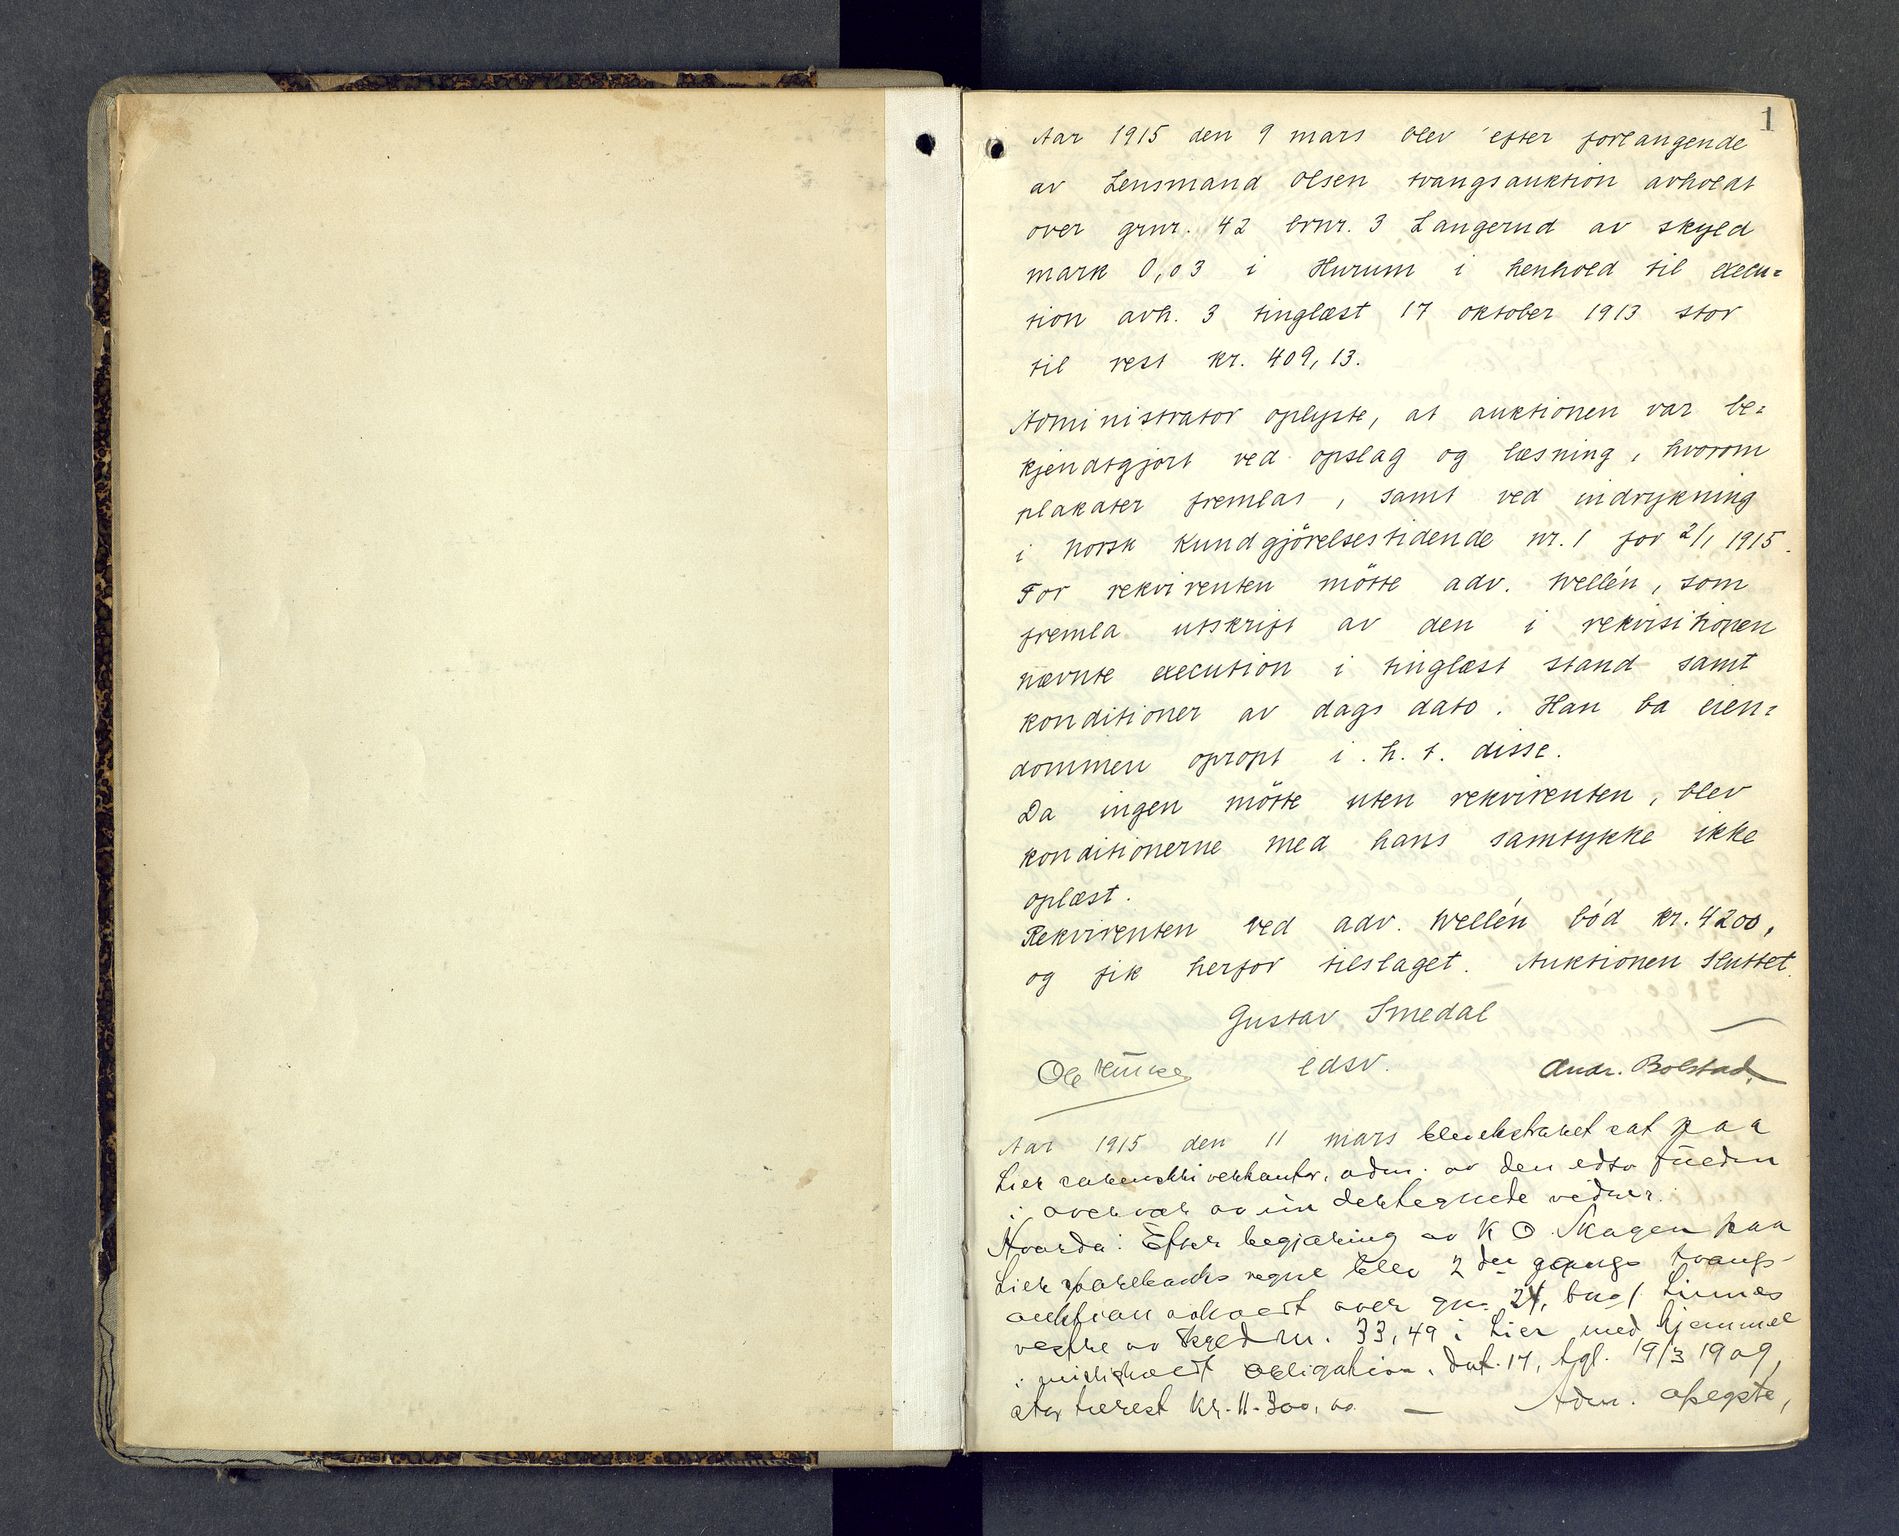 1
Aar 1915 den 9 mars blev efter forlangende
av Lensmand Olsen tvangsauktion avholdt
over grnr. 42 brnr. 3 Langerud av skyld
mark 0,03 i Hurum i henhold til execu=
tion avh. 3 tinglæst 17 oktober 1913 stor
til rest kr. 409,13.
Administrator oplyste, at auktionen var be=
kjendtgjort ved opslag og læsning, hvorom
plakater fremlas, samt ved indrykning
i Norsk Kundgjörelsestidende nr. 1 for 2/1 1915.
For rekvirenten mötte adv. Wellén, som
fremla utskrift av den i rekvisitionen
nævnte execution i tinglæst stand samt
konditioner av dags dato. Han ba eien=
dommen opropt i. h. t. disse.
Da ingen mötte uten rekvirenten, blev
konditionerne med hans samtykke ikke
oplæst.
Rekvirenten ved adv. Wellén bód kr. 4200,
og fik herfor tilslaget. Auktionen sluttet.
Gustav Smedal
Ole edsv. Andr. Bolstad.
Aar 1915 den 11 mars blev ekstraret sat paa
Lier sorenskriverkontor, adm. av den edsv
i overvær av undertegnede vidner.
Hvorda: Efter begjæring av K O Skagen paa
Lier sparebanks vegne blev 2den gangs tvangs-
auktion avholdt over gn. bno 1 Linnes
vestre av skyld m. 33,49 i Lier med hjemmel
i misligholdt obligation, dat. 17, tgl. 19/3 1909,
stor tilrest kr. 11.300,00 — Adm. oplyste,